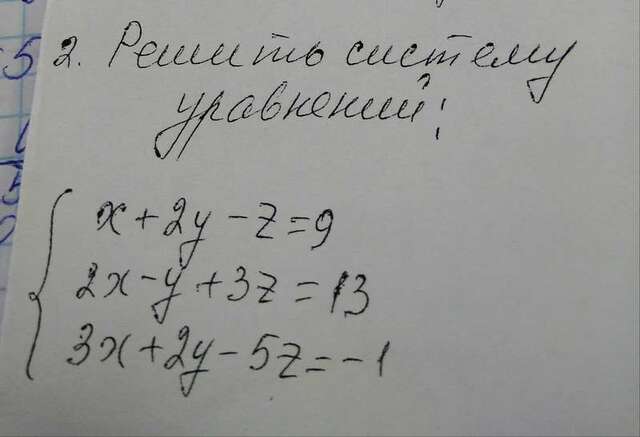 2. Решить систему
уравнений:
x + 2y - z = 9
2x - y + 3z = 13
3x + 2y - 5z = -1